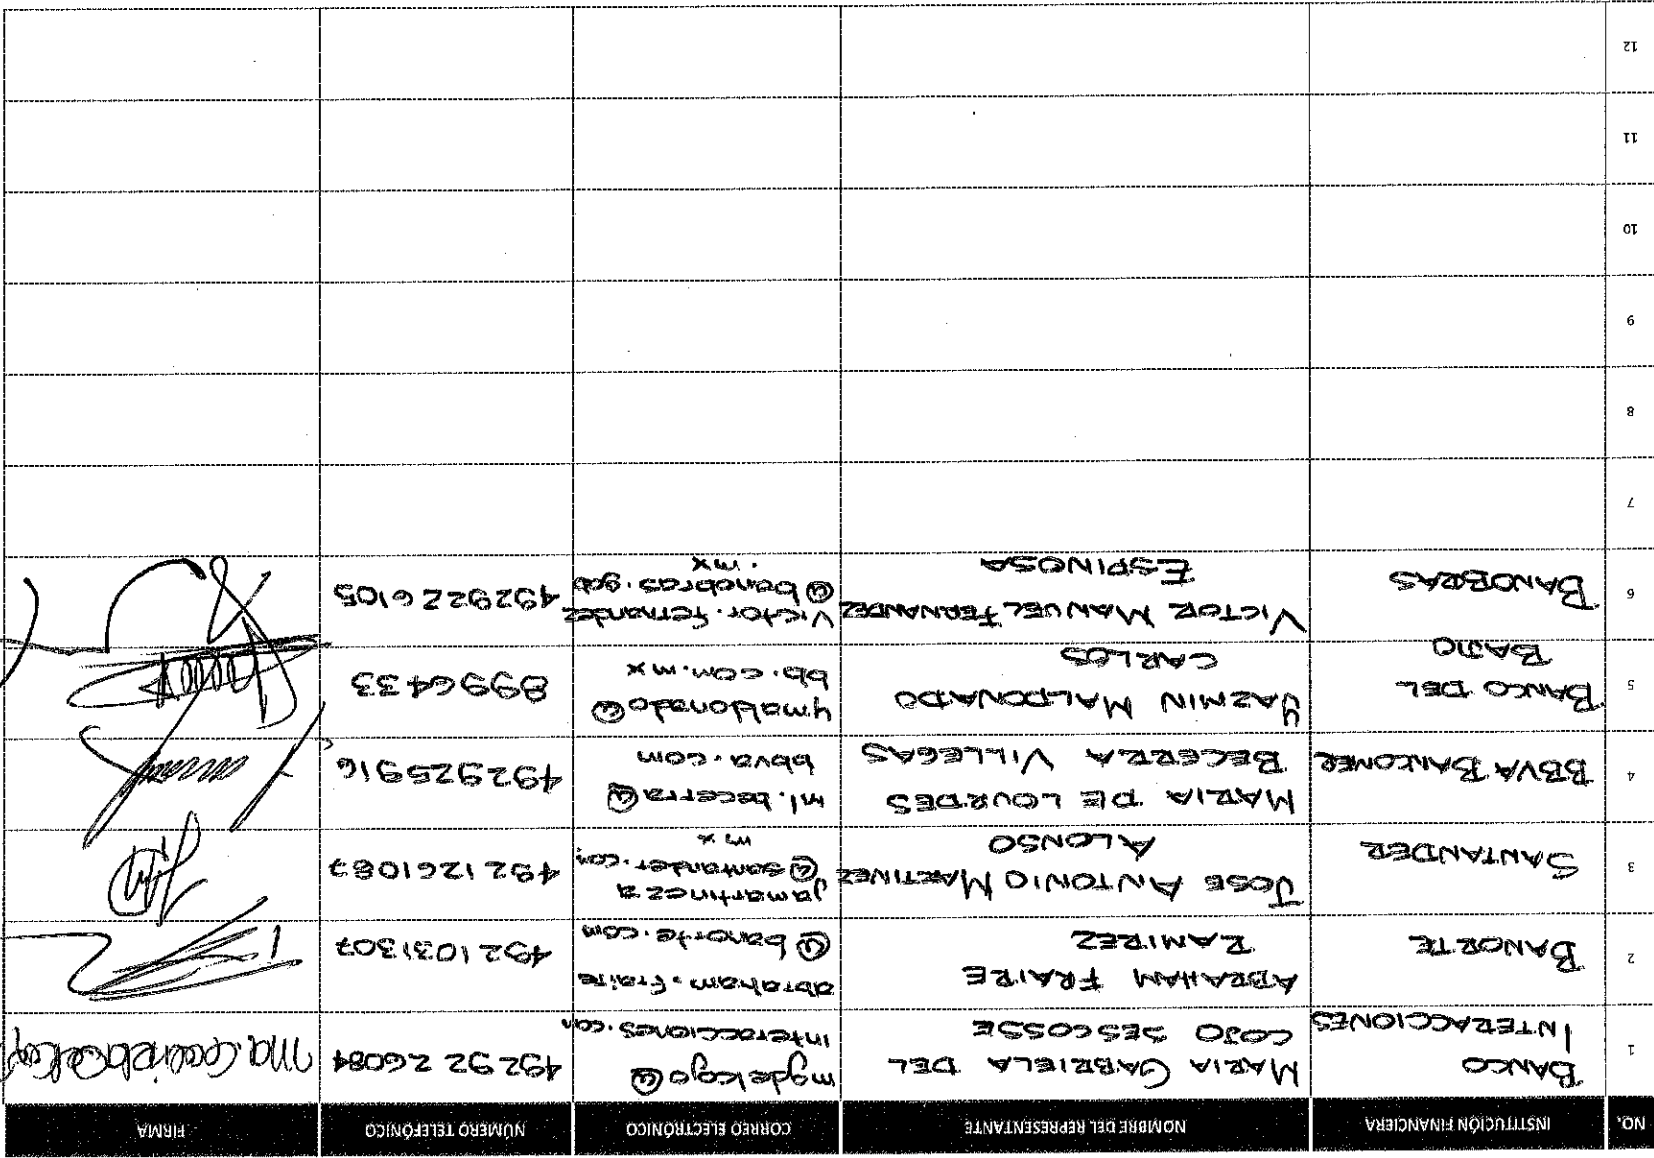 NO. INSTITUCIÓN FINANCIERA NOMBRE DEL REPRESENTANTE CORREO ELECTRÓNICO NÚMERO TELEFÓNICO FIRMA
1 BANCO INTERACCIONES MARIA GABRIELA DEL COJO DESCOSSE mgdelcojo@ interacciones.com 4929226084
2 BANORTE ABRAHAM FRAIRE RAMIREZ abraham.fraire @banorte.com 4921031307
3 SANTANDER JOSE ANTONIO MARTINEZ ALONSO jamartineza @santander.com mx 4921261087
4 BBVA BANCOMER MARIA DE LOURDES BECERRA VILLEGAS ml.becerra@ bbva.com 492925916
5 BANCO DEL BAJIO YAZMIN MALDONADO CARLOS ymaldonado@ bb.com.mx 8996433
6 BANOBRAS VICTOR MANUEL FERNANDEZ ESPINOSA Victor.fernandez @banobras.gob .mx 4929226105
7
8
9
10
11
12